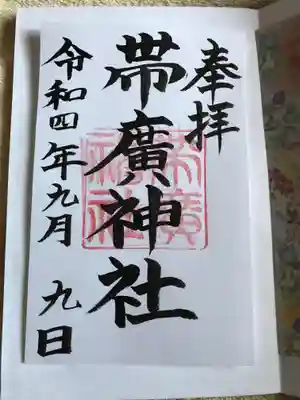 奉拝
帯廣神社
令和四年九月 九日